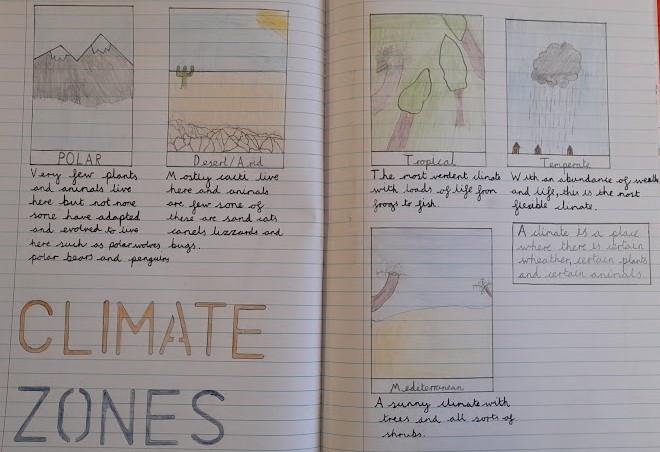 POLAR
Very few plants
and animals live
here but not none
some have adapted
and evolved to live
here such as polar wolves
polar bears and penguins
Desert/Arid
Mostly cacti live
here and animals
are few some of
these are sand cats
camels lizzards and
bugs.
CLIMATE
ZONES
Tropical
The most verdent climate
with loads of life from
frogs to fish.
Temperate
With an abundance of wealth
and life, this is the most
flexible climate.
A climate is a place
where there is certain
wheather, certain plants
and certain animals.
Mediterranean
A sunny climate with
trees and all sorts of
shrubs.